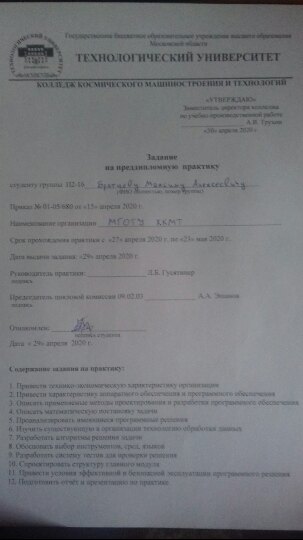 Государственное бюджетное образовательное учреждение высшего образования
Московской области
ТЕХНОЛОГИЧЕСКИЙ УНИВЕРСИТЕТ
КОЛЛЕДЖ КОСМИЧЕСКОГО МАШИНОСТРОЕНИЯ И ТЕХНОЛОГИЙ
«УТВЕРЖДАЮ»
Заместитель директора колледжа
по учебно-производственной работе
А.В.
апреля 2020 г.
Задание
на преддипломную практику
студенту группы П2-16 Максиму Алексеевичу
(ФИО полностью, номер группы)
Приказ № 01-05/680 от «15» апреля 2020 г.
Наименование организации МГОТУ ККМТ
Срок прохождения практики с «27» апреля 2020 г. по «23» мая 2020 г.
Дата выдачи задания: «29» апреля 2020 г.
Руководитель практики: Л.Б. Гусятинер
подпись
Председатель цикловой комиссии 09.02.03 А.А.
подпись
Ознакомлен:
подпись студента
Дата « 29» апреля 2020 г.
Содержание задания на практику:
1. Привести технико-экономическую характеристику организации
2. Привести характеристику аппаратного обеспечения и программного обеспечения
3. Описать применяемые методы проектирования и разработки программного обеспечения
4. Описать математическую постановку задачи
5. Проанализировать имеющиеся программные решения
6. Изучить существующую в организации технологию обработки данных
7. Разработать алгоритмы решения задачи
8. Обосновать выбор инструментов, сред, языков
9. Разработать систему тестов для проверки решения
10. Спроектировать структуру главного модуля
11. Привести условия эффективной и безопасной эксплуатации программного решения
12. Подготовить отчёт и презентацию по практике